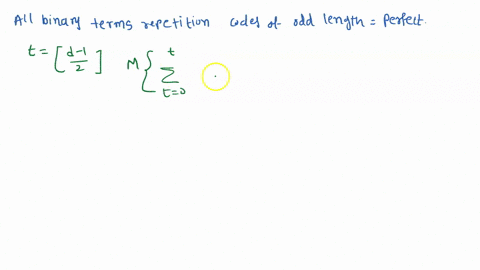 All binary terms repetition codes of odd length = Perfect.
t = [d-1/2] M { t Σ t=0